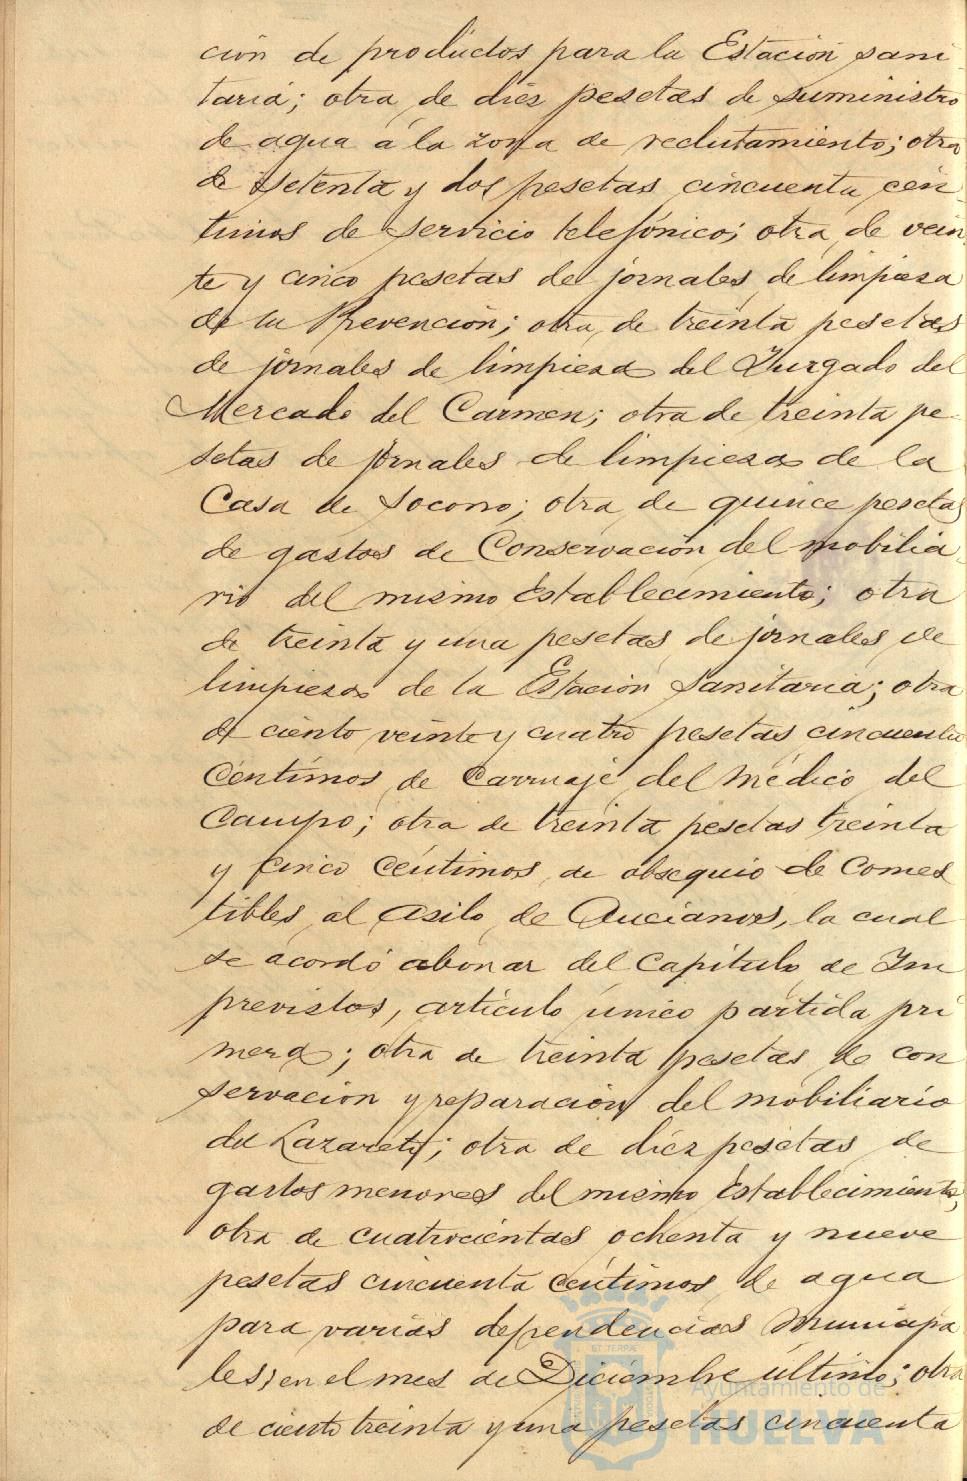 ción de productos para la Estación sani-
taria; otra, de diez pesetas de suministro
de agua á la zona de reclutamiento; otra
de setenta y dos pesetas cincuenta cén
timos de servicio telefónico; otra, de vein
te y cinco pesetas de jornales de limpieza
de la Prevención; otra, de treinta pesetas
de jornales de limpieza del Juzgado del
Mercado del Carmen; otra de treinta pe-
setas de jornales de limpieza de la
Casa de Socorro; otra de quince pesetas
de gastos de Conservación del mobilia-
rio del mismo Establecimiento; otra
de treinta y una pesetas de jornales de
limpieza de la Estación Sanitaria; otra
de ciento veinte y cuatro pesetas cincuenta
céntimos de Carruaje del Médico del
Campo; otra de treinta pesetas treinta
y cinco céntimos de obsequio de Comes
tibles al Asilo de Ancianos, la cual
se acordó abonar del Capítulo de Im
previstos, artículo único partida pri
mera; otra de treinta pesetas de con
servación y reparación del mobiliario
del Lazareto; otra de diez pesetas de
gastos menores del mismo Establecimiento;
otra de cuatrocientas ochenta y nueve
pesetas cincuenta céntimos de agua
para varias dependencias Municipa
les, en el mes de Diciembre último; otra
de ciento treinta y una pesetas cincuenta
Ayuntamiento de
HUELVA